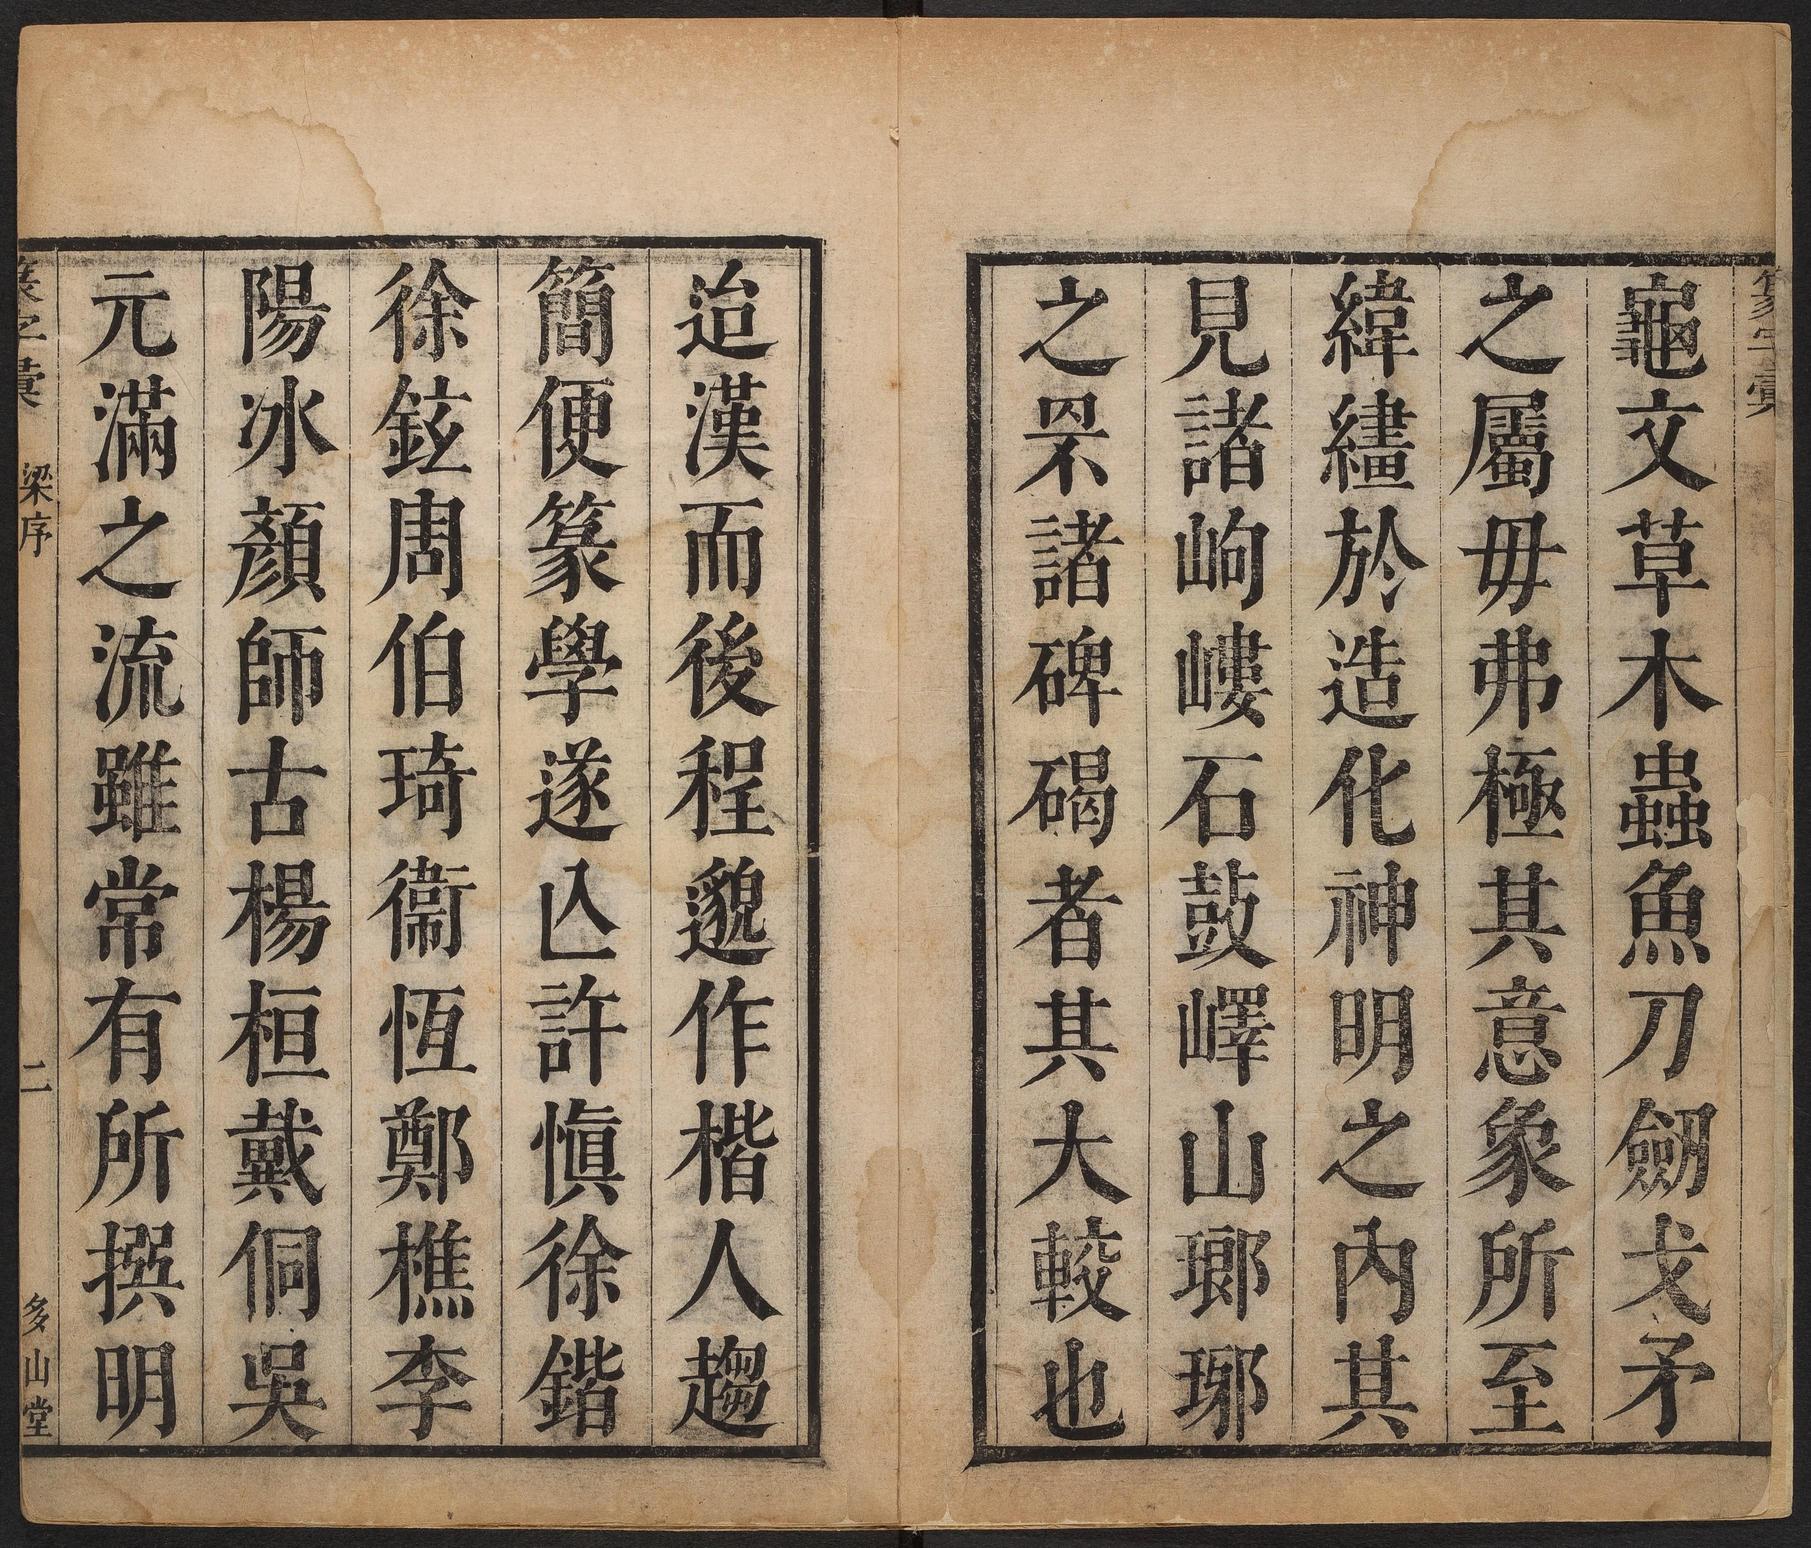 龜文草木蟲魚刀劒戈矛
之屬毋弗極其意象所至
緯繣於造化神明之內其
見諸岣嶁石鼓嶧山瑯琊
之罘諸碑碣者其大較也
迨漢而後程邈作楷人趨
簡便篆學遂亾許愼徐鍇
徐鉉周伯琦衞恆鄭樵李
陽冰顏師古楊桓戴侗吳
元滿之流雖常有所撰明
篆字彙
梁序
二
多山堂